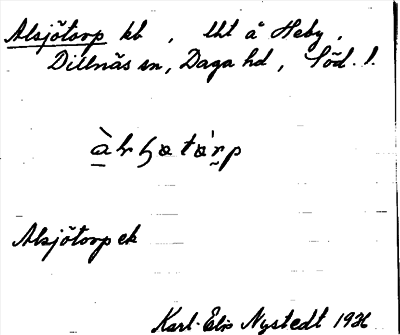 Alsjötorp kb , lht å Heby .
Dillnäs sn, Daga hd , Söd. l.
Alsjötorp ek
Karl-Elis Nystedt 1936